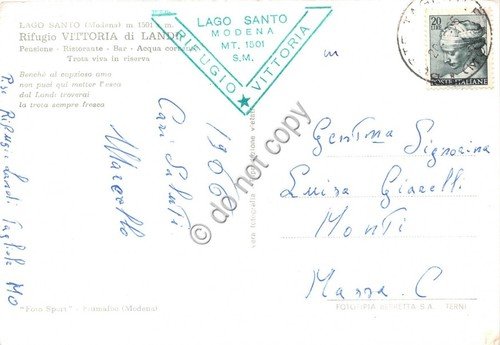 LAGO SANTO (Modena) m 1501 s.m.
Rifugio VITTORIA di LANDI
Pensione - Ristorante - Bar - Acqua corrente
Trota viva in riserva
Benchè al caprioso amo
non puoi qui metter l'esca
dal Landi troverai
la trota sempre fresca
LAGO SANTO
MODENA
MT. 1501
S.M.
RIFUGIO
VITTORIA
20
ITALIANE
1966
Cari Saluti
Marcello
Gentma Signorina
Luisa Giarelli
Monti
Massa. C
vera fotografia
"Foto Sport" - Fiumalbo (Modena)
FOTOTIPIA BERRETTA S.A. TERNI
do not copy